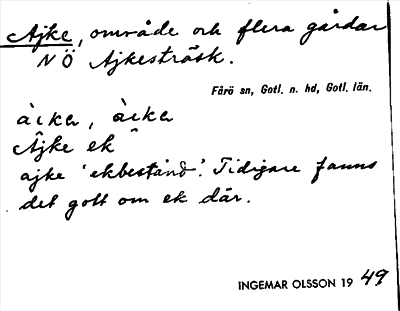 Ajke, område och flera gårdar
N Ö Ajkesträsk.
Fårö sn, Gotl. n. hd, Gotl. län.
Ajke ek
ajke 'ekbestånd'. Tidigare fanns
det gott om ek där.
INGEMAR OLSSON 19 49